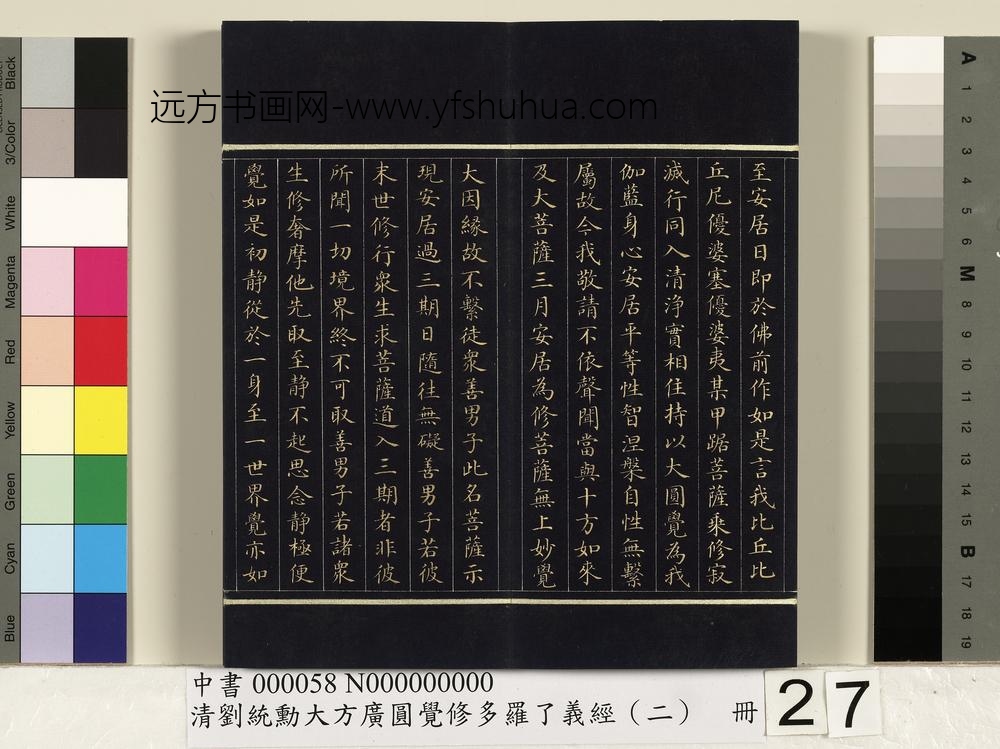 远方书画网-www.yfshuhua.com
至安居日即於佛前作如是言我比丘比
丘尼優婆塞優婆夷某甲踞菩薩乘修寂
滅行同入清淨實相住持以大圓覺為我
伽藍身心安居平等性智涅槃自性無繫
屬故今我敬請不依聲聞當與十方如來
及大菩薩三月安居為修菩薩無上妙覺
大因緣故不繫徒衆善男子此名菩薩示
現安居過三期日隨往無礙善男子若彼
末世修行衆生求菩薩道入三期者非彼
所聞一切境界終不可取善男子若諸衆
生修奢摩他先取至静不起思念静極便
覺如是初静從於一身至一世界覺亦如
Black
3/Color
White
Magenta
Red
Yellow
Green
Cyan
Blue
A
1
2
3
4
5
6
M
8
9
10
11
12
13
14
15
B
17
18
19
中書 000058 N000000000
清劉統勳大方廣圓覺修多羅了義經（二） 冊
27